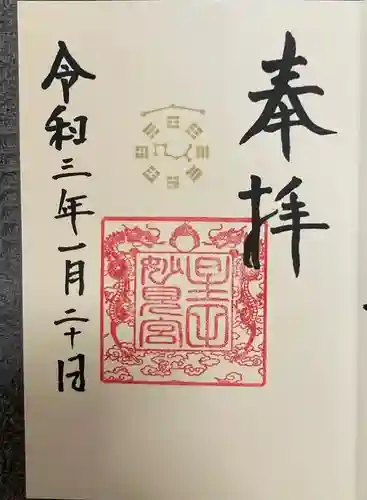 奉拝
星田
妙見宮
令和三年一月二十日